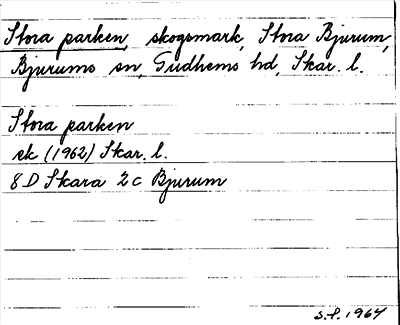 Stora parken, skogsmark, Stora Bjurum,
Bjurums sn, Gudhems hd, Skar. l.
Stora parken
ek (1962) Skar. l.
8 D Skara 2 c Bjurum
S.F. 1964